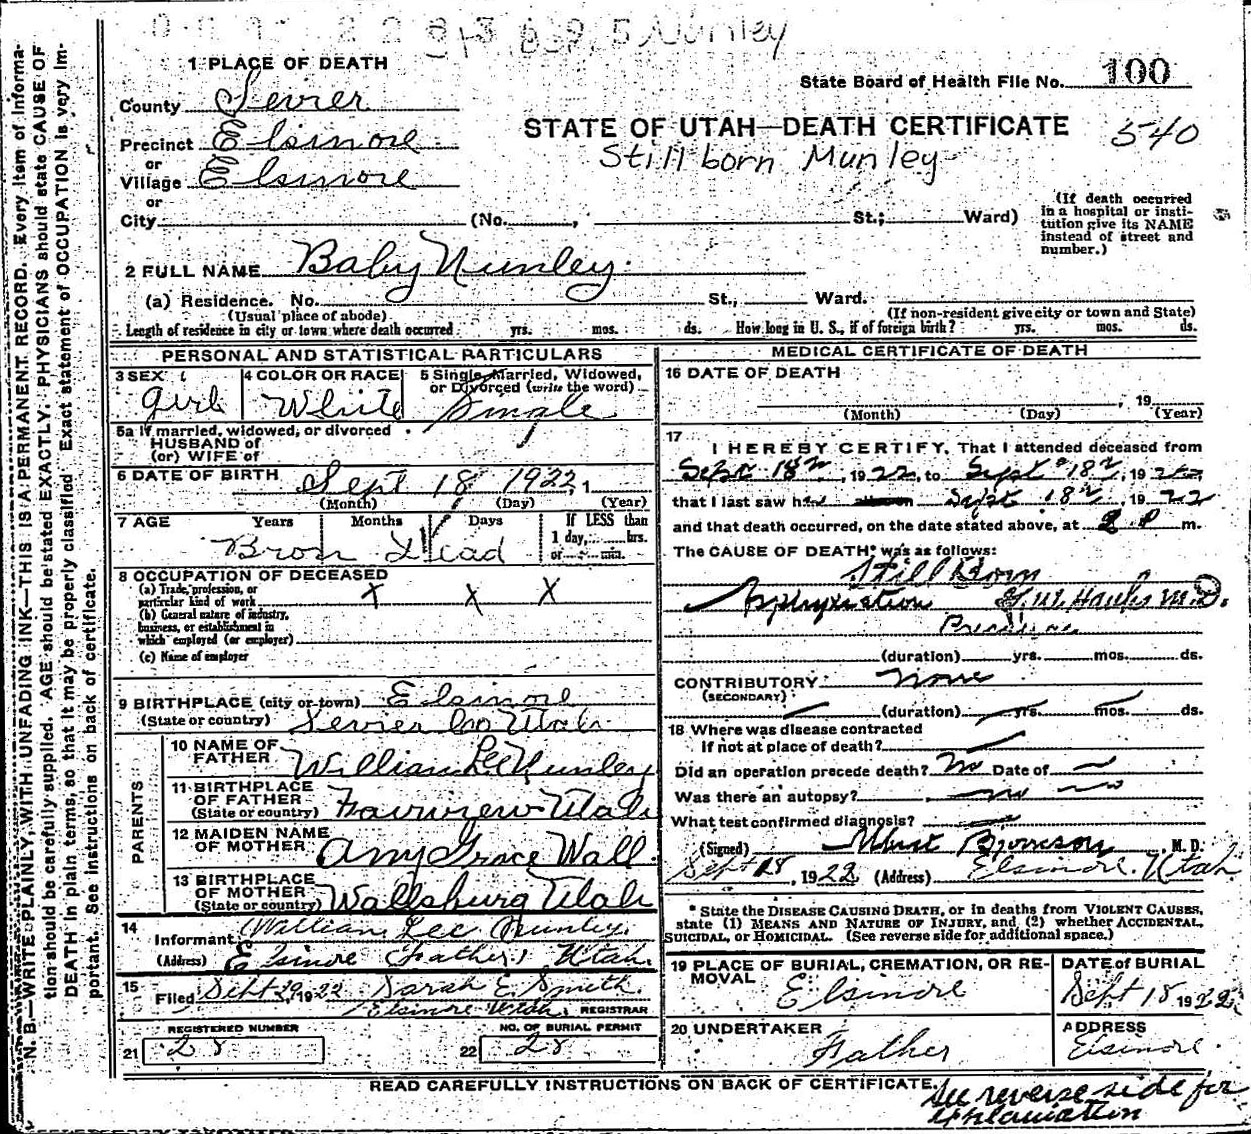 Nunley
1 PLACE OF DEATH
State Board of Health File No. 100
County Sevier
STATE OF UTAH—DEATH CERTIFICATE 540
Precinct Elsinore
Stillborn Munley
or
Village Elsinore
or
City (No. , St.; Ward)
(If death occurred in a hospital or institution give its NAME instead of street and number.)
2 FULL NAME Baby Nunley.
(a) Residence. No. St., Ward.
(Usual place of abode) (If non-resident give city or town and State)
Length of residence in city or town where death occurred yrs. mos. ds. How long in U. S., if of foreign birth? yrs. mos. ds.
PERSONAL AND STATISTICAL PARTICULARS
3 SEX girl
4 COLOR OR RACE White
5 Single, Married, Widowed, or Divorced (write the word) Single
5a If married, widowed, or divorced
HUSBAND of
(or) WIFE of
6 DATE OF BIRTH Sept 18 1922, 1
(Month) (Day) (Year)
7 AGE Years Months Days If LESS than 1 day, hrs. or min.
Born Dead
8 OCCUPATION OF DECEASED
(a) Trade, profession, or particular kind of work X X X
(b) General nature of industry, business, or establishment in which employed (or employer)
(c) Name of employer
9 BIRTHPLACE (city or town) Elsinore
(State or country) Sevier Co Utah.
PARENTS
10 NAME OF FATHER William Lee Nunley
11 BIRTHPLACE OF FATHER (State or country) Fairview Utah
12 MAIDEN NAME OF MOTHER Amy Grace Wall.
13 BIRTHPLACE OF MOTHER (State or country) Wallsburg Utah
14 Informant William Lee Nunley.
(Address) Elsinore Father, Utah.
15 Filed Sept 29 1922 Sarah E Smith.
Elsinore Utah. REGISTRAR
21 REGISTERED NUMBER 28
22 NO. OF BURIAL PERMIT 28
MEDICAL CERTIFICATE OF DEATH
16 DATE OF DEATH
, 19
(Month) (Day) (Year)
17 I HEREBY CERTIFY, That I attended deceased from
Sept 18, 1922, to Sept 18, 1922,
that I last saw her Sept 18, 1922
and that death occurred, on the date stated above, at 2 P m.
The CAUSE OF DEATH* was as follows:
Still Born
Asphyxiation M.D.
(duration) yrs. mos. ds.
CONTRIBUTORY None
(SECONDARY)
(duration) yrs. mos. ds.
18 Where was disease contracted
If not at place of death?
Did an operation precede death? No Date of
Was there an autopsy? no
What test confirmed diagnosis?
(Signed) , M. D.
Sept 18, 1922 (Address) Elsinore, Utah
* State the DISEASE CAUSING DEATH, or in deaths from VIOLENT CAUSES, state (1) MEANS AND NATURE OF INJURY, and (2) whether ACCIDENTAL, SUICIDAL, OR HOMICIDAL. (See reverse side for additional space.)
19 PLACE OF BURIAL, CREMATION, OR REMOVAL Elsinore
DATE OF BURIAL Sept 18 1922
20 UNDERTAKER Father
ADDRESS Elsinore.
READ CAREFULLY INSTRUCTIONS ON BACK OF CERTIFICATE.
See reverse side for
explanation
N. B.—WRITE PLAINLY, WITH UNFADING INK—THIS IS A PERMANENT RECORD. Every item of information should be carefully supplied. AGE should be stated EXACTLY. PHYSICIANS should state CAUSE OF DEATH in plain terms, so that it may be properly classified. Exact statement of OCCUPATION is very important. See instructions on back of certificate.